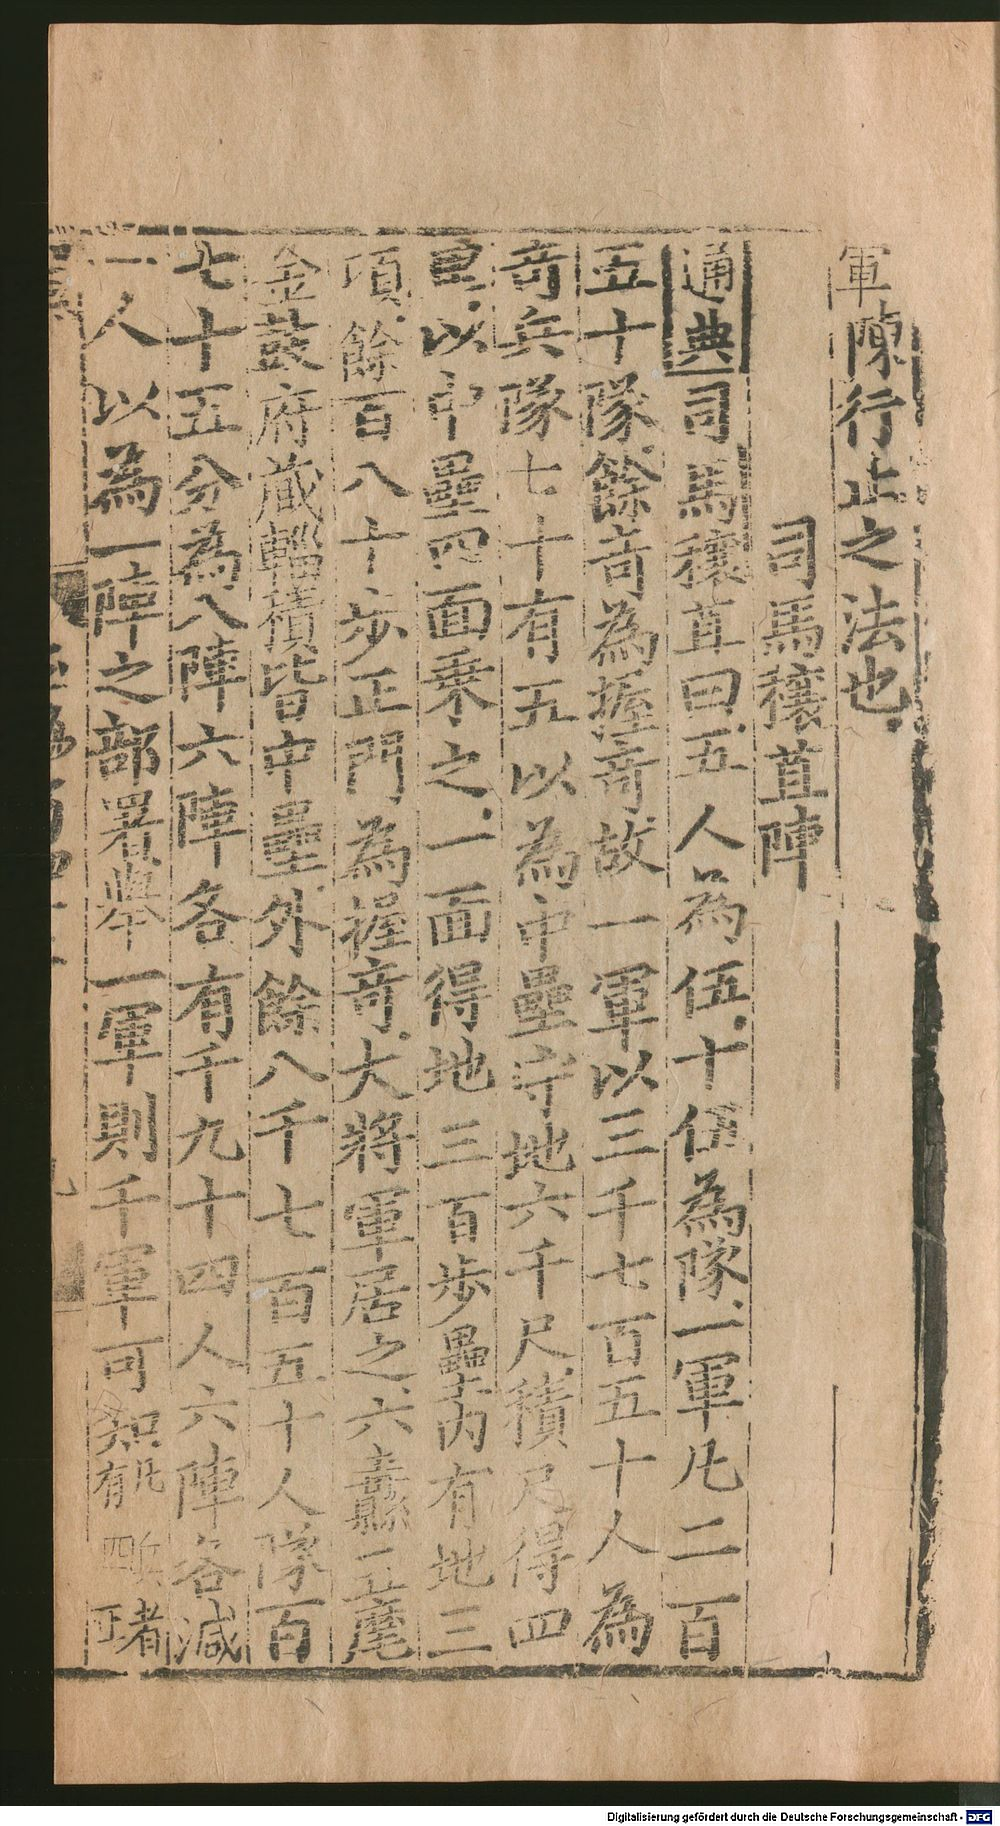 軍陳行止之法也
司馬穰苴陣
通典司馬穰苴曰五人為伍十伍為隊一軍凡二百
五十隊餘竒為握竒故一軍以三千七百五十人為
竒兵隊七十有五以為中壘守地六千尺積尺得四
里以中壘四面乗之一面得地三百步壘内有地三
項餘百八十步正門為握竒大將軍居之六纛五麾
金鼓府蔵輜積皆中壘外餘八千七百五十人隊百
七十五分為八陣六陣各有千九十四人六陣各減
一人以為一陣之部署舉一軍則千軍可知凡兵者
有四正
Digitalisierung gefördert durch die Deutsche Forschungsgemeinschaft - DFG